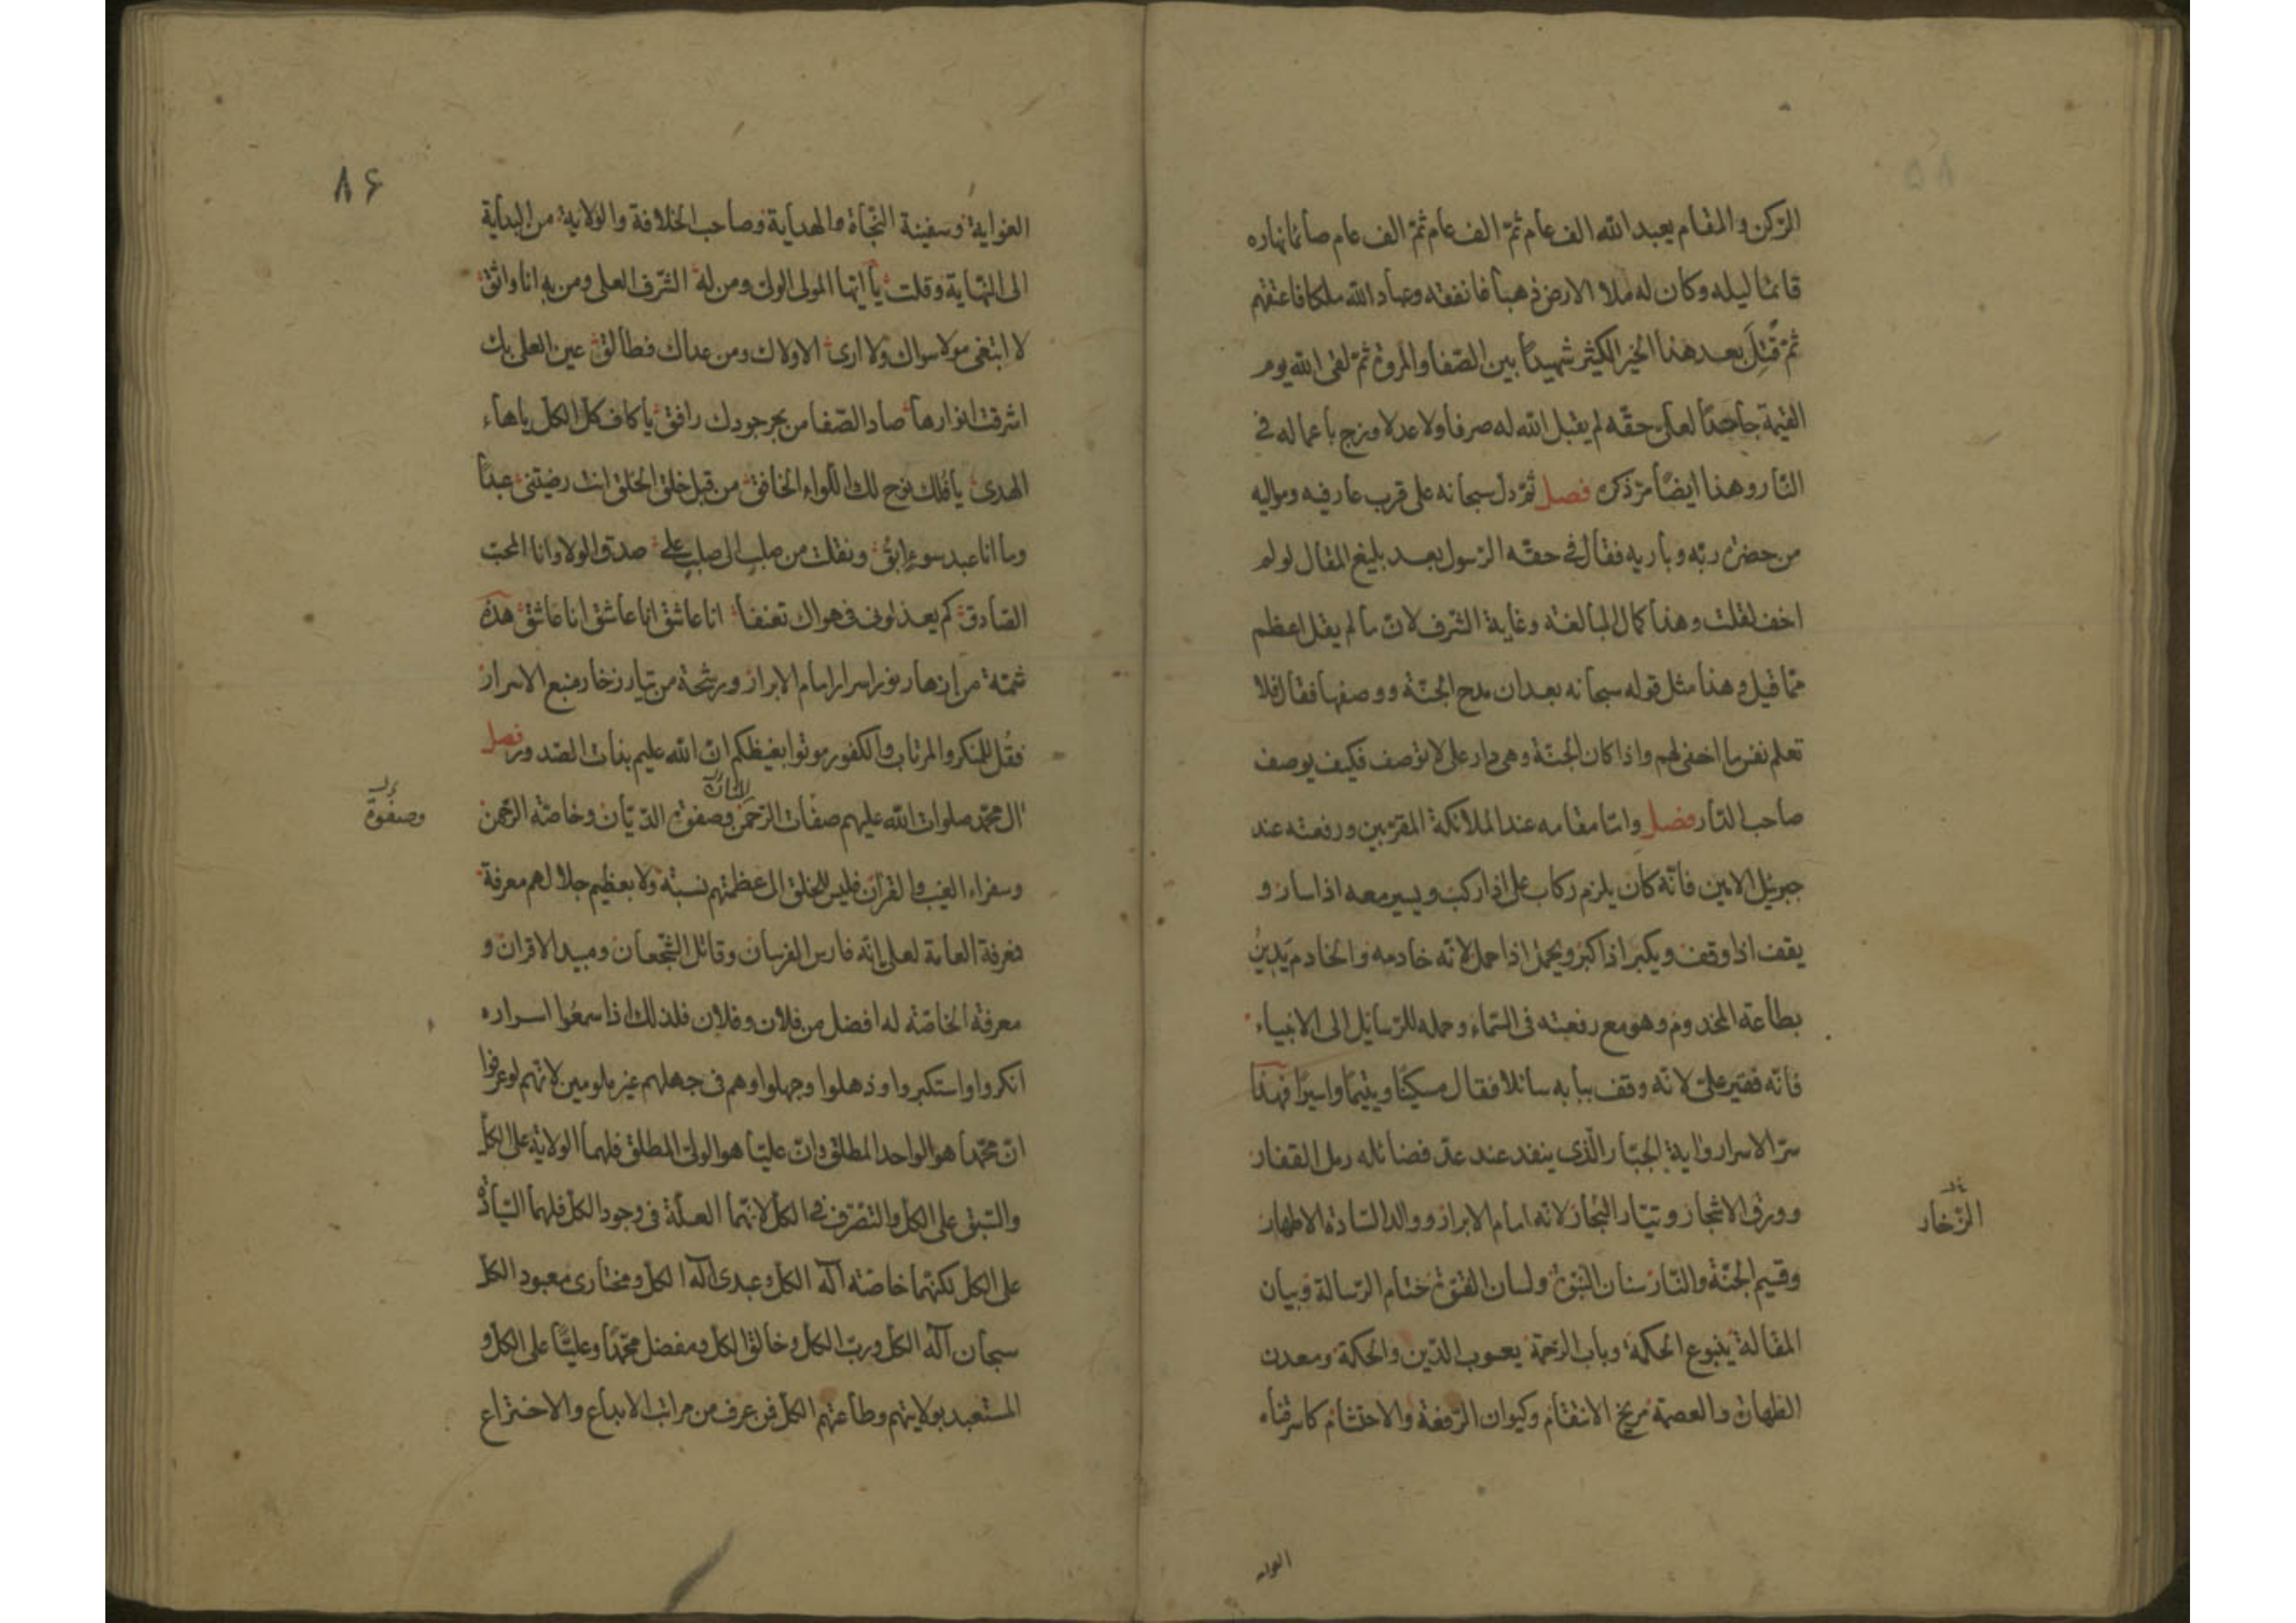 الركن والمقام يعبد الله الف عام ثمّ الف عام ثمّ الف عام صائما نهاره
قائما ليله وكان له ملا الارض ذهباً فانفقه وعباد الله ملكا فاعتقهم
ثمّ قُتِلَ بعد هذا الخير الكثير شهيداً بين الصّفا والمروة ثمّ لقى الله يوم
القيمة جاحداً لعلى حقّه لم يقبل الله له صرفا ولا عدلا وزج باعماله فى
النّار وهذا ايضاً من ذكره فصل ثمّ دل سبحانه على قرب عارفيه ومواليه
من حضرة ربّه وباريه فقال فى حقّه الرسول بعد بليغ المقال لو لم
اخف لقلت وهذا كمال المبالغه وغاية الشّرف لانّ ما لم يقل اعظم
ممّا قيل وهذا مثل قوله سبحانه بعد ان مدح الجنّة ووصفها فقال فلا
تعلم نفس ما اخفى لهم واذا كان الجنّة وهى دار على لا توصف فكيف يوصف
صاحب الدّار فصل وامّا مقامه عند الملائكة المقرّبين ورفعته عند
جبرئيل الامين فانّه كان يلزم ركاب على اذا ركب ويسير معه اذا سار و
يقف اذا وقف ويكبر اذا كبر ويحمل اذا حمل لانّه خادمه والخادم يَدِينُ
بطاعة المخدوم وهو مع رفعته فى السّماء وحمله للرّسائل الى الانبياء
فانّه فقير علىّ لانّه وقف ببابه سائلا فقال مسكيناً ويتيماً واسيراً فهذا
سرّ الاسرار واية الجبّار الّذى ينفد عند عدّ فضائله رمل القفار
وورق الاشجار وتيّار البحار لانه امام الابرار ووالد السّادة الاطهار
الزّخار
وقسيم الجنّة والنّار سنان النبوّة ولسان الفتوّة ختام الرّسالة وبيان
المقالة ينبوع الحكمة وباب الرّحمة يعسوب الدّين والحكمة ومعدن
الطهارة والعصمة مريخ الانتقام وكيوان الرّفعة والاحتشام كاسر قناه
٨۶
الغواية وسفينة النّجاة والهداية وصاحب الخلافة والولاية من البداية
الى النّهاية وقلت يا ايّها المولى الولى ومن له الشّرف العلى ومن به انا واثق
لا ابتغى مولا سواك ولا ارى الاولاك ومن عداك فطالق عين العلى بك
اشرقت انوارها صاد الصّفا من بحر جودك رافق يا كاف كلّ الكلّ ياهاء
الهدى يا فلك نوح لك اللّواء الخافق من قبل خلق الخلق انت رضيتنى عبداً
وما انا عبد سوء ابق ونقلت من صلب الى صلب على صدق الولا وانا المحبّ
الصّادق كم يعذلونى فى هواك تعنفا انا عاشق انا عاشق انا عاشق هذه
شمّة من ازهار نور اسرار امام الابرار ورشحة من تيار زخار منبع الاسرار
فقُل للمنكر والمرتاب والكفور موتوا بغيظكم انّ الله عليم بذات الصّدور فصل
ال محمّد صلوات الله عليهم صفات الرّحمن وصفوة الدّيّان وخاصّة الرّحمن
وصفوة
وسفراء الغيب والقرآن فليس للخلق الى عظمتهم نسبته ولا بعظيم جلالهم معرفة
فمعرفة العامة لعلى انّه فارس الفرسان وقاتل الشّجعان ومبيد الاقران و
معرفة الخاصّة له افضل من فلان وفلان فلذلك اذا سمعوا اسراره
انكروا واستكبروا وذهلوا وجهلوا وهم فى جهلهم غير ملومين لانّهم لو عرفوا
انّ محمّداً هو الواحد المطلق وانّ عليّا هو الولى المطلق فلهما الولاية على الكلّ
والسّبق على الكلّ والتّصرّف فى الكلّ لانّهما العلّة فى وجود الكلّ فلهما السّيادة
على الكلّ لكنّهما خاصّة آله الكلّ وعبدى آله الكلّ ومختارى معبود الكلّ
سبحان آله الكلّ وربّ الكلّ وخالق الكلّ ومفضل محمّداً وعليّاً على الكلّ و
المستعبد بولايتهم وطاعتهم الكلّ فمن عرف من مراتب الابداع والاختراع